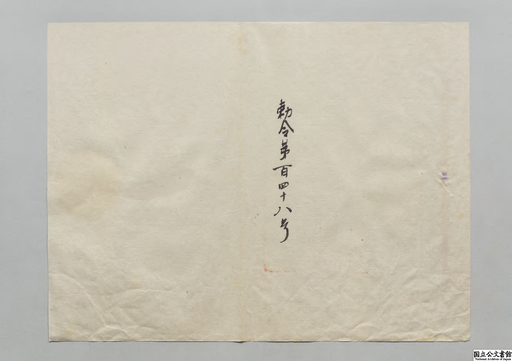 勅令第百四十八号
国立公文書館
National Archives of Japan